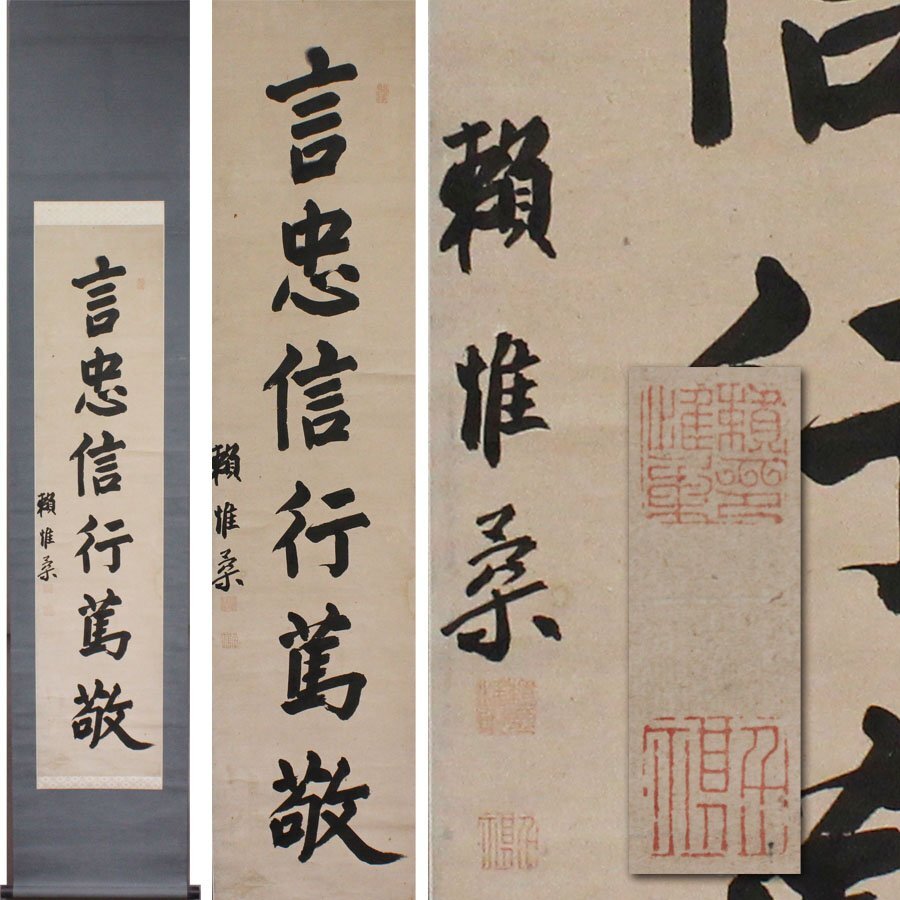 言忠信行篤敬
賴惟柔
言忠信行篤敬
賴惟柔
賴惟柔